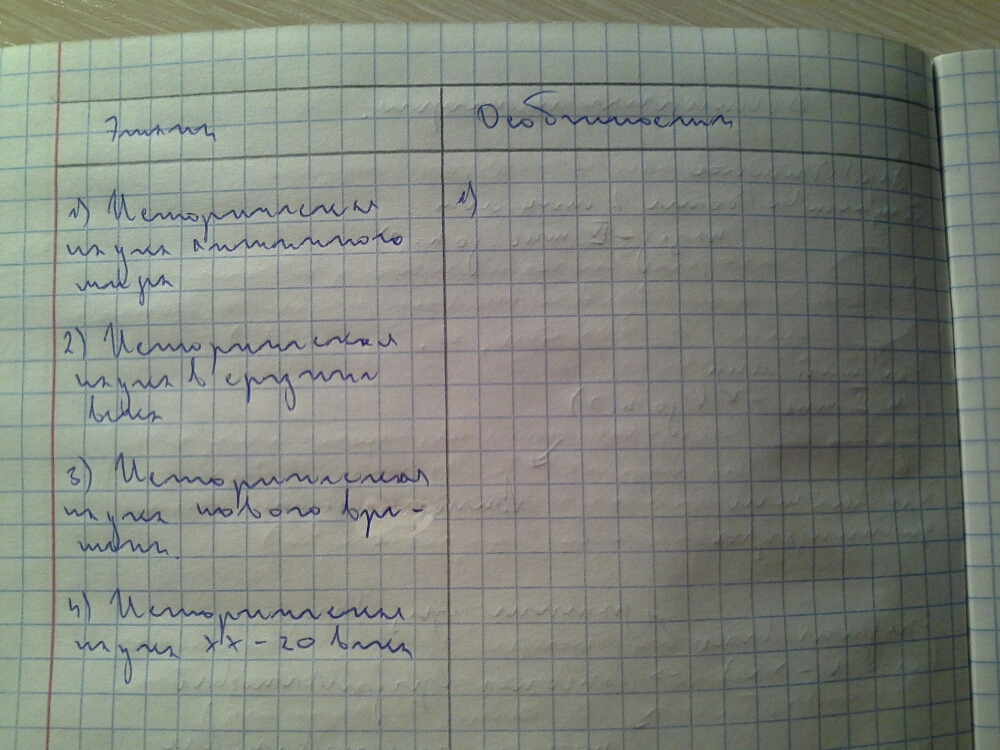 Этапы
Особенности
1) Историческая
наука античного
мира
1)
2) Историческая
наука в средние
века
3) Историческая
наука нового вре-
мени.
4) Историческая
наука XX-20 века